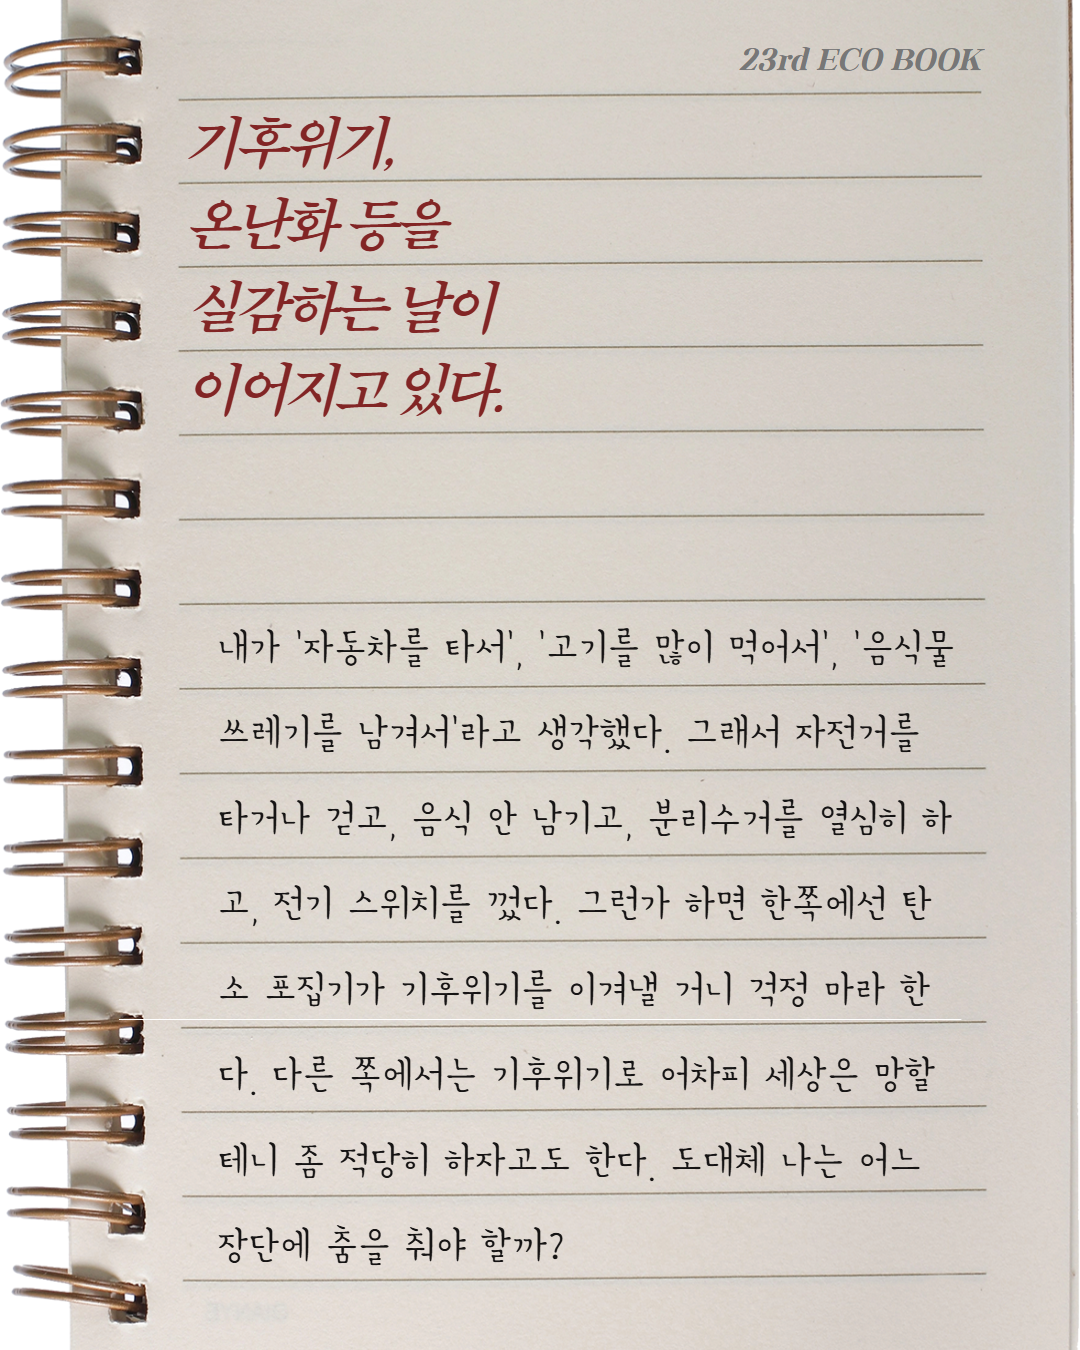 23rd ECO BOOK
기후위기,
온난화 등을
실감하는 날이
이어지고 있다.
내가 '자동차를 타서', '고기를 많이 먹어서', '음식물
쓰레기를 남겨서'라고 생각했다. 그래서 자전거를
타거나 걷고, 음식 안 남기고, 분리수거를 열심히 하
고, 전기 스위치를 껐다. 그런가 하면 한쪽에선 탄
소 포집기가 기후위기를 이겨낼 거니 걱정 마라 한
다. 다른 쪽에서는 기후위기로 어차피 세상은 망할
테니 좀 적당히 하자고도 한다. 도대체 나는 어느
장단에 춤을 춰야 할까?